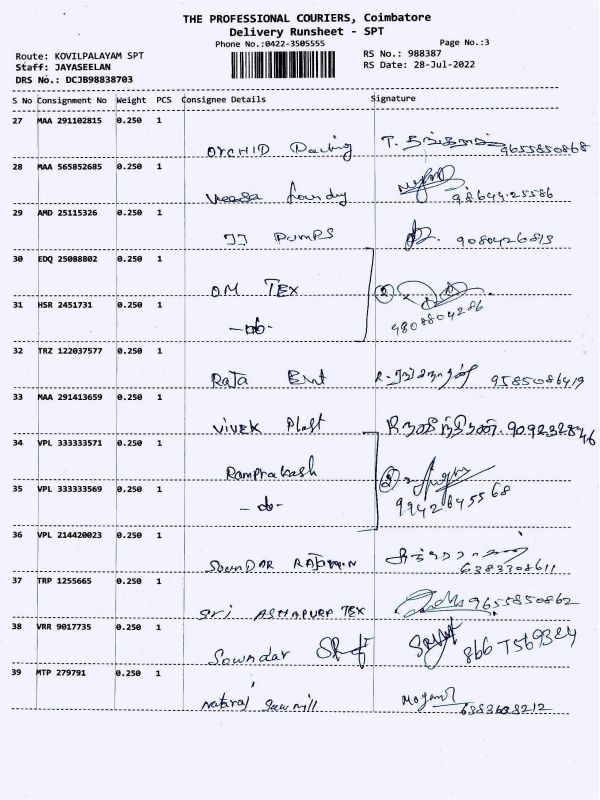 THE PROFESSIONAL COURIERS, Coimbatore
Delivery Runsheet - SPT
Phone No.:0422-3505555
Page No.:3
Route: KOVILPALAYAM SPT
RS No.: 988387
Staff: JAYASEELAN
RS Date: 28-Jul-2022
DRS No.: DCJB98838703
S No Consignment No Weight PCS Consignee Details Signature
27 MAA 291102815 0.250 1
ORCHID 9655850868
28 MAA 565852685 0.250 1
29 AMD 25115326 0.250 1
JJ PUMPS 9080426813
30 EDQ 25088802 0.250 1
OM TEX 2
31 HSR 2451731 0.250 1
-do- 9808804286
32 TRZ 122037577 0.250 1
Raja Ent 9585086419
33 MAA 291413659 0.250 1
VIVEK Plast 909232846
34 VPL 333333571 0.250 1
Ramprakash 2
35 VPL 333333569 0.250 1
-do- 9942645568
36 VPL 214420023 0.250 1
SounDAR 6383308611
37 TRP 1255665 0.250 1
Sri ASHAPURA TEX 9655850862
38 VRR 9017735 0.250 1
Sowndar 8667569324
39 MTP 279791 0.250 1
Nataraj Saw mill 6383608212